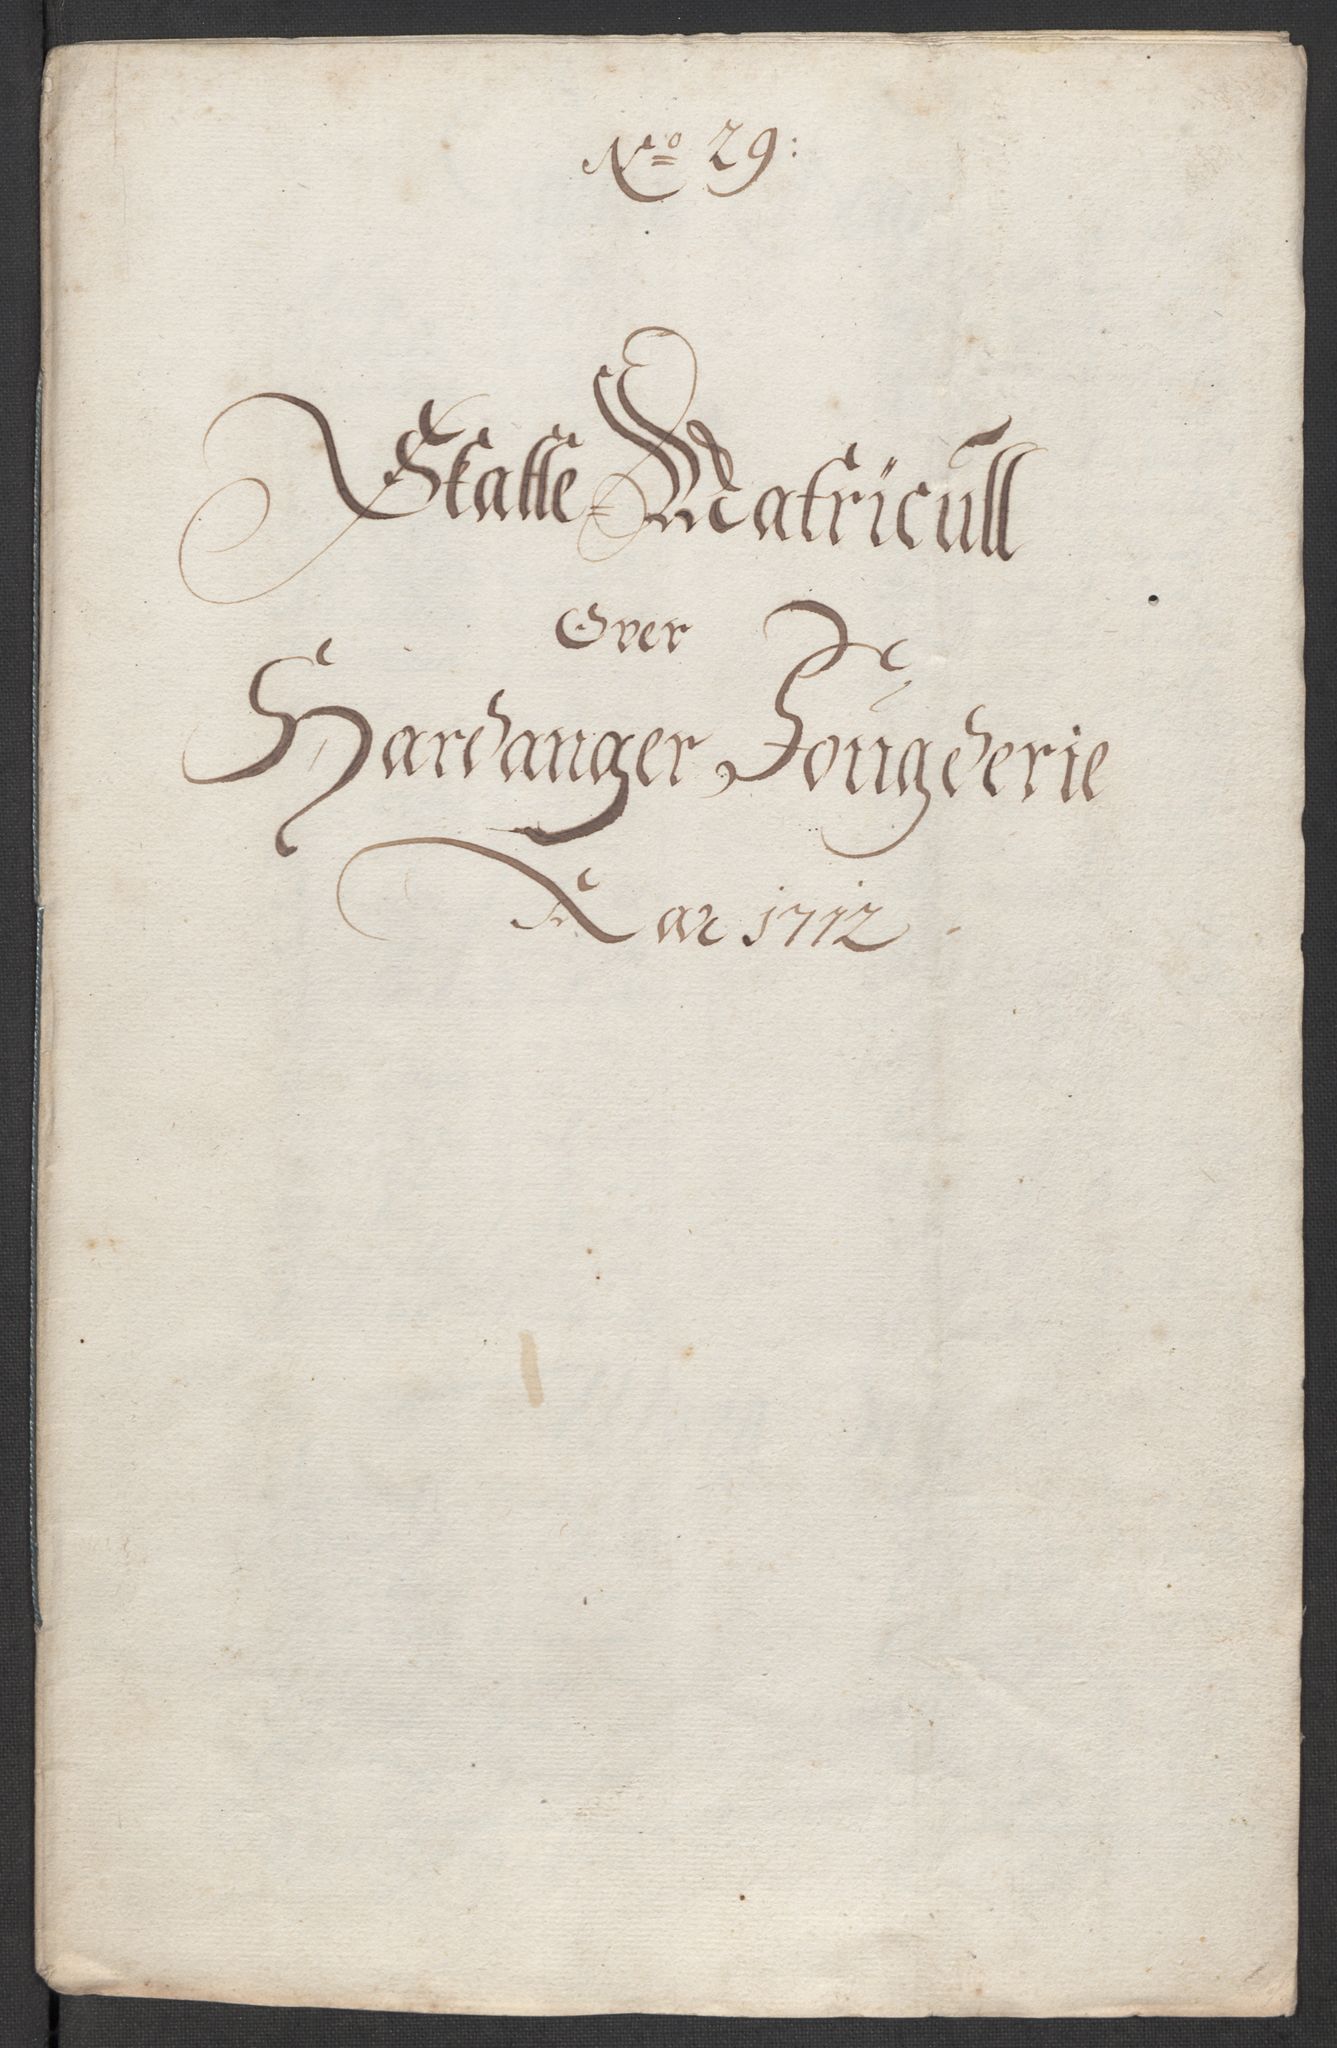 No 29:
Skatte-Matricull
Over
Hardanger Fougderie
Aar 1712